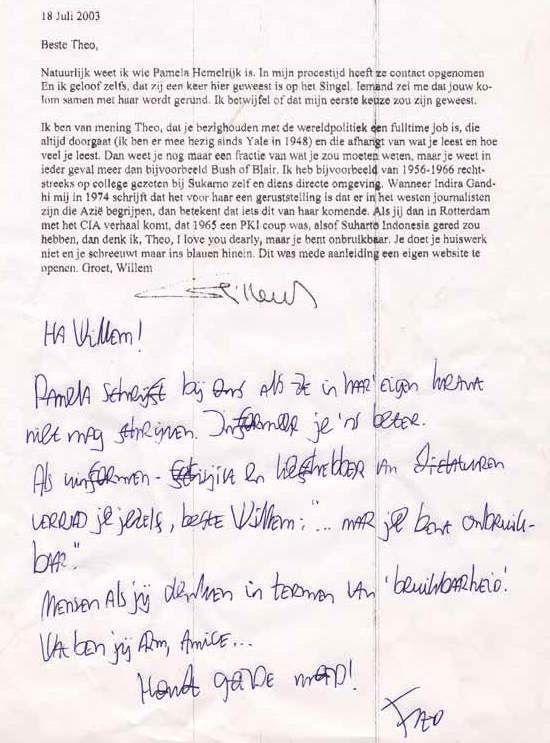 18 Juli 2003
Beste Theo,
Natuurlijk weet ik wie Pamela Hemelrijk is. In mijn procestijd heeft ze contact opgenomen
En ik geloof zelfs, dat zij een keer hier geweest is op het Singel. Iemand zei me dat jouw ko-
lom samen met haar wordt gerund. Ik betwijfel of dat mijn eerste keuze zou zijn geweest.
Ik ben van mening Theo, dat je bezighouden met de wereldpolitiek een fulltime job is, die
altijd doorgaat (ik ben er mee bezig sinds Yale in 1948) en die afhangt van wat je leest en hoe
veel je leest. Dan weet je nog maar een fractie van wat je zou moeten weten, maar je weet in
ieder geval meer dan bijvoorbeeld Bush of Blair. Ik heb bijvoorbeeld van 1956-1966 recht-
streeks op college gezeten bij Sukarno zelf en diens directe omgeving. Wanneer Indira Gand-
hi mij in 1974 schrijft dat het voor haar een geruststelling is dat er in het westen journalisten
zijn die Azië begrijpen, dan betekent dat iets dit van haar komende. Als jij dan in Rotterdam
met het CIA verhaal komt, dat 1965 een PKI coup was, alsof Suharto Indonesia gered zou
hebben, dan denk ik, Theo, I love you dearly, maar je bent onbruikbaar. Je doet je huiswerk
niet en je schreeuwt maar ins blauen hinein. Dit was mede aanleiding een eigen website te
openen. Groet, Willem
Willem
HA Willem!
Pamela schrijft bij ons als ze in haar eigen krant
niet mag schrijven. Informeer je 'ns beter.
Als en liefhebber van dictaturen
verraad je jezelf, beste Willem: "... maar je bent onbruik-
baar."
Mensen als jij denken in termen van 'bruikbaarheid'.
Wat ben jij arm, amice...
Houdt gade moed!
Theo